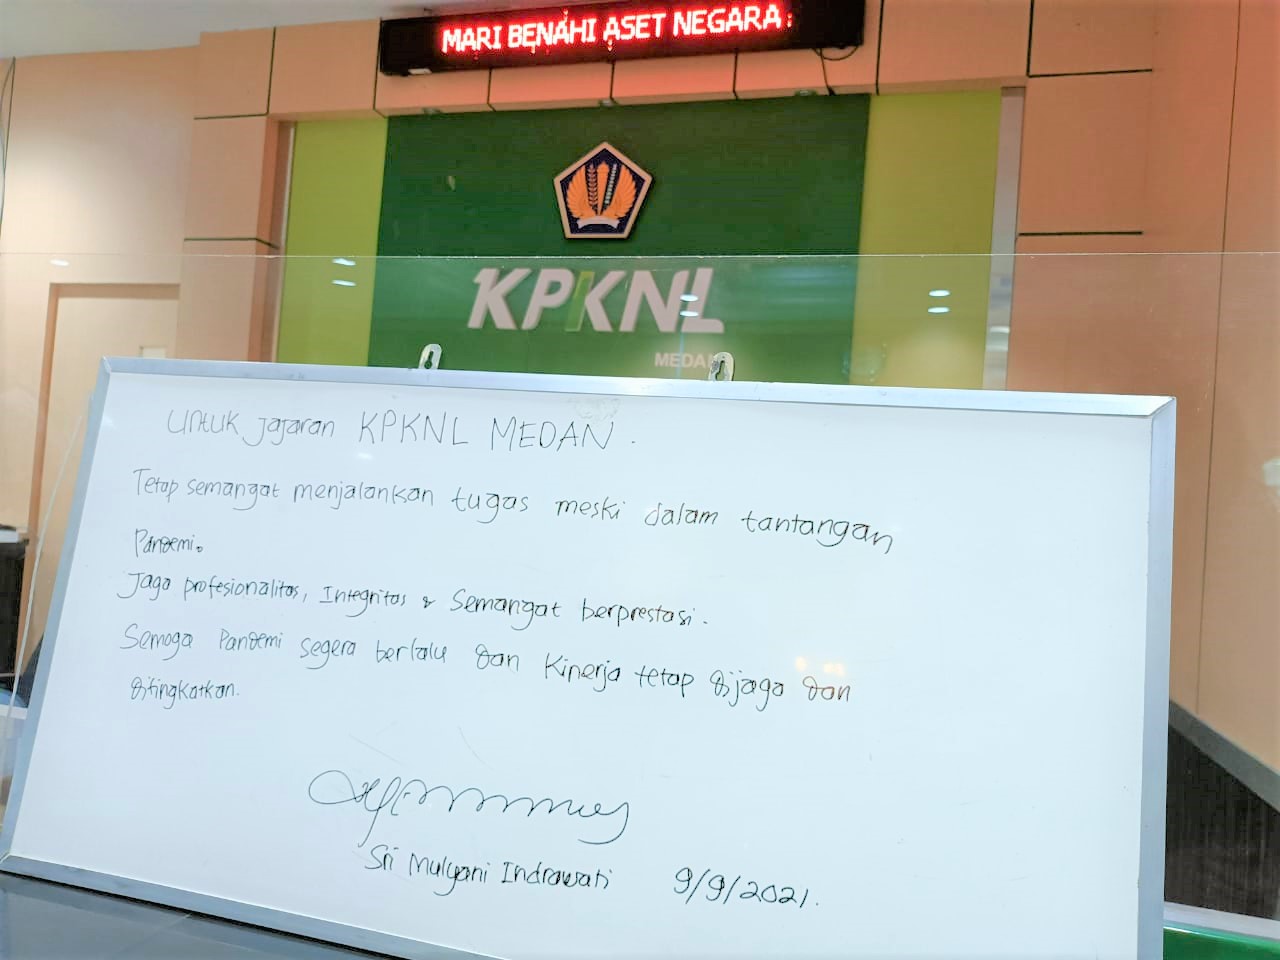 MARI BENAHI ASET NEGARA
KPKNL
MEDAN
Untuk jajaran KPKNL MEDAN.
Tetap semangat menjalankan tugas meski dalam tantangan
Pandemi.
Jaga profesionalitas, Integritas & Semangat berprestasi.
Semoga Pandemi segera berlalu dan Kinerja tetap dijaga dan
ditingkatkan.
Sri Mulyani Indrawati 9/9/2021.